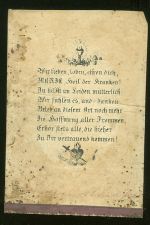 Wir lieben, loben, ehren dich,
MARIA, Heil der Kranken!
Du hilfst im Leiden mütterlich
Wir fühlen es, und danken
an diesem Ort noch nicht
Die Hoffnung aller Frommen,
Erhör stets alle, die hieher
Zu Dir vertrauend kommen!